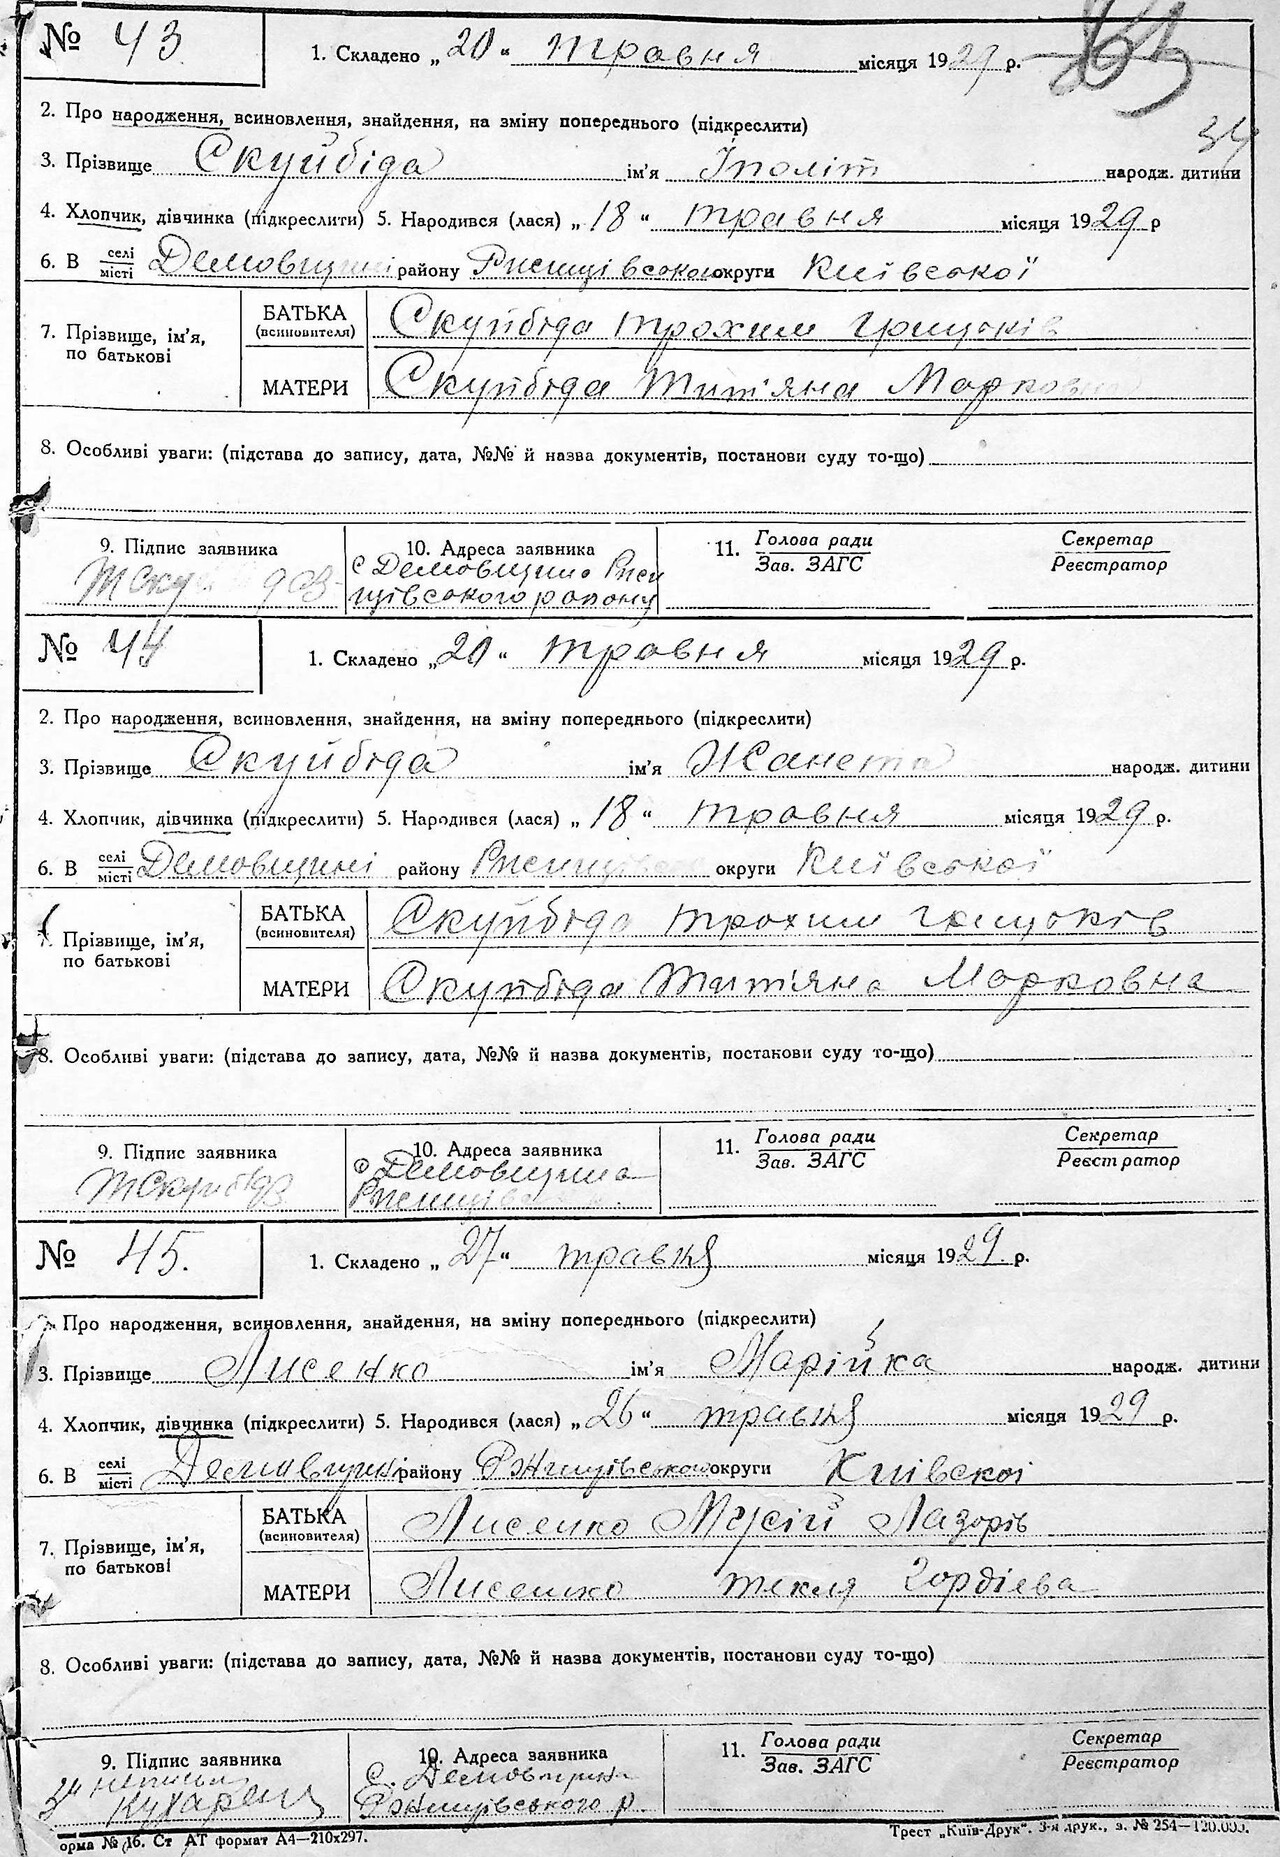 № 43 1. Складено „20“ травня місяця 1929 р.
2. Про народження, всиновлення, знайдення, на зміну попереднього (підкреслити)
34
3. Прізвище Скуйбіда ім'я Іполіт народж. дитини
4. Хлопчик, дівчинка (підкреслити) 5. Народився (лася) „18“ травня місяця 1929 р
6. В селі/місті Демовщині району Ржищівського округи Київської
7. Прізвище, ім'я, по батькові БАТЬКА (всиновителя) Скуйбіда Трохим Грицьків
МАТЕРИ Скуйбіда Тит'яна Марковна
8. Особливі уваги: (підстава до запису, дата, №№ й назва документів, постанови суду то-що)
9. Підпис заявника 10. Адреса заявника 11. Голова ради/Зав. ЗАГС Секретар/Реєстратор
с Демовщина Ржи
щівського району
№ 44 1. Складено „20“ травня місяця 1929 р.
2. Про народження, всиновлення, знайдення, на зміну попереднього (підкреслити)
3. Прізвище Скуйбіда ім'я Жанета народж. дитини
4. Хлопчик, дівчинка (підкреслити) 5. Народився (лася) „18“ травня місяця 1929 р.
6. В селі/місті Демовщині району Ржищівсь округи Київської
7. Прізвище, ім'я, по батькові БАТЬКА (всиновителя) Скуйбіда Трохим Грицьків
МАТЕРИ Скуйбіда Тит'яна Марковна
8. Особливі уваги: (підстава до запису, дата, №№ й назва документів, постанови суду то-що)
9. Підпис заявника 10. Адреса заявника 11. Голова ради/Зав. ЗАГС Секретар/Реєстратор
ТСкуйбіда с Демовщина
№ 45. 1. Складено „27“ травня місяця 1929 р.
2. Про народження, всиновлення, знайдення, на зміну попереднього (підкреслити)
3. Прізвище Лисенко ім'я Марійка народж. дитини
4. Хлопчик, дівчинка (підкреслити) 5. Народився (лася) „26“ травня місяця 1929 р.
6. В селі/місті Демовщині району Ржищівського округи Київскої
7. Прізвище, ім'я, по батькові БАТЬКА (всиновителя) Лисенко Мусій Лазорів
МАТЕРИ Лисенко Текля Гордієва
8. Особливі уваги: (підстава до запису, дата, №№ й назва документів, постанови суду то-що)
9. Підпис заявника 10. Адреса заявника 11. Голова ради/Зав. ЗАГС Секретар/Реєстратор
с. Демовщина
Ржищівського р.
орма № 16. Ст АТ формат А4—210х297. Трест „Київ-Друк“. 3-я друк., з. № 254—120.000.